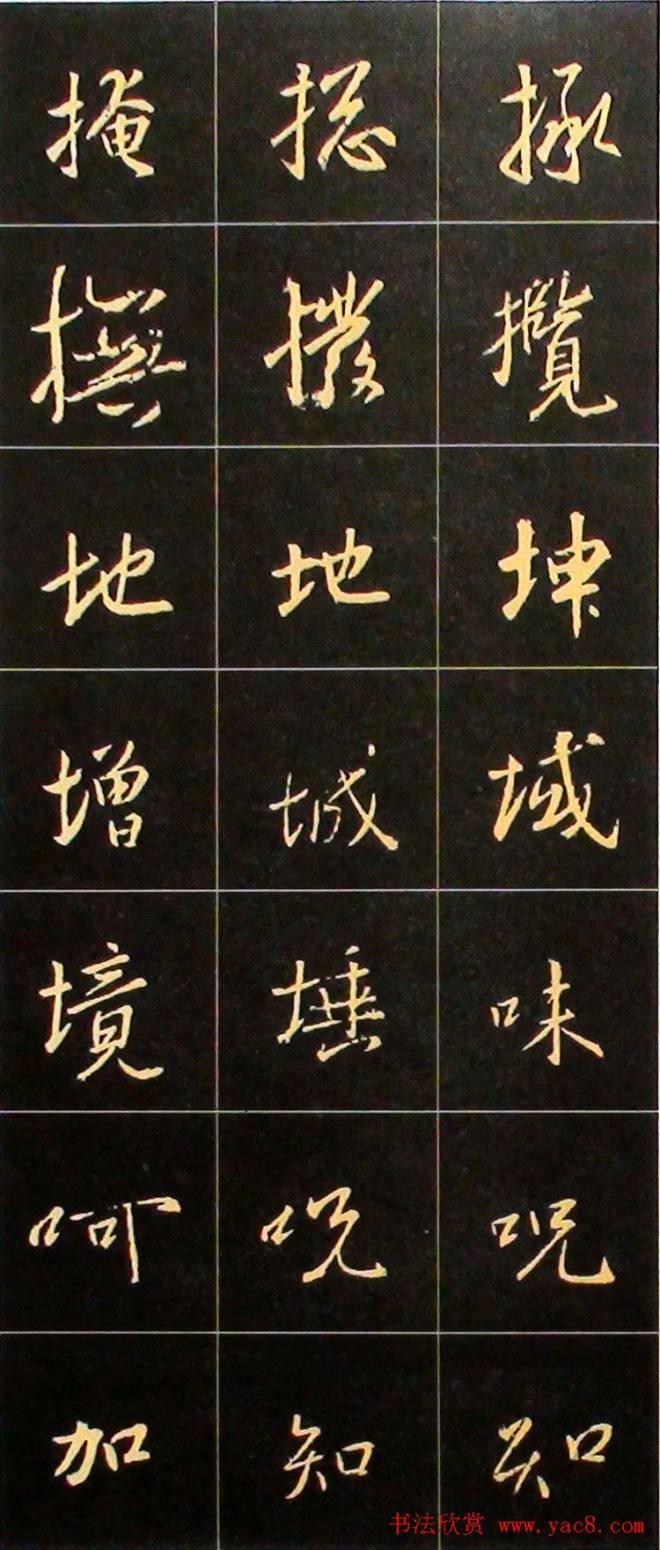 掩揔拯
撫撥攬
地地坤
增城域
境埵味
呵呪呪
加知知
书法欣赏 www.yac8.com